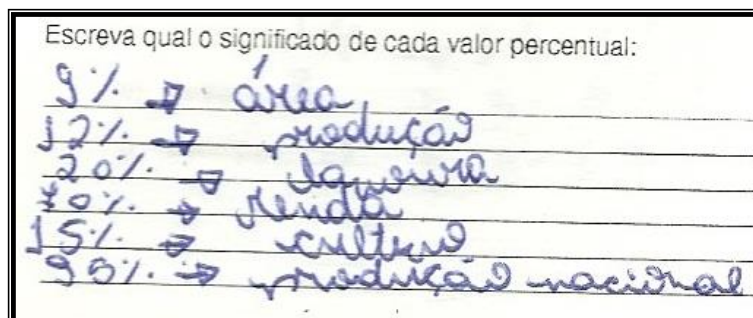 Escreva qual o significado de cada valor percentual:
9% → área
12% → produção
20% → lavoura
70% → renda
15% → cultivo
95% → produção nacional